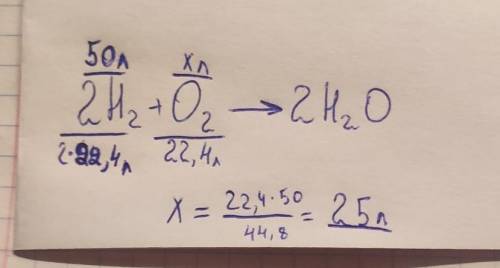 50л xл
2H₂ + O₂ → 2H₂O
2·22,4л 22,4л
X = 22,4·50 / 44,8 = 25л